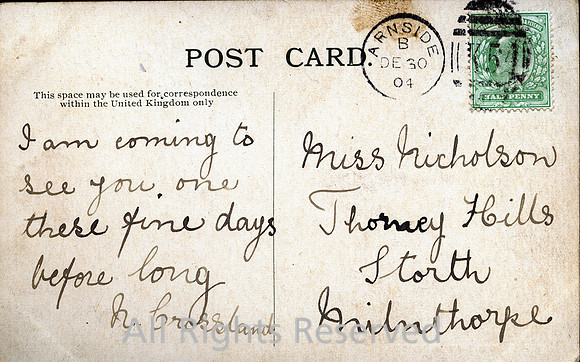 POST CARD.
ARNSIDE
B
DE 30
04
HALFPENNY
This space may be used for correspondence
within the United Kingdom only
I am coming to
see you one
these fine days
before long
N. Crossland
Miss Nicholson
Thorney Hills
Storth
Milnthorpe
All Rights Reserved